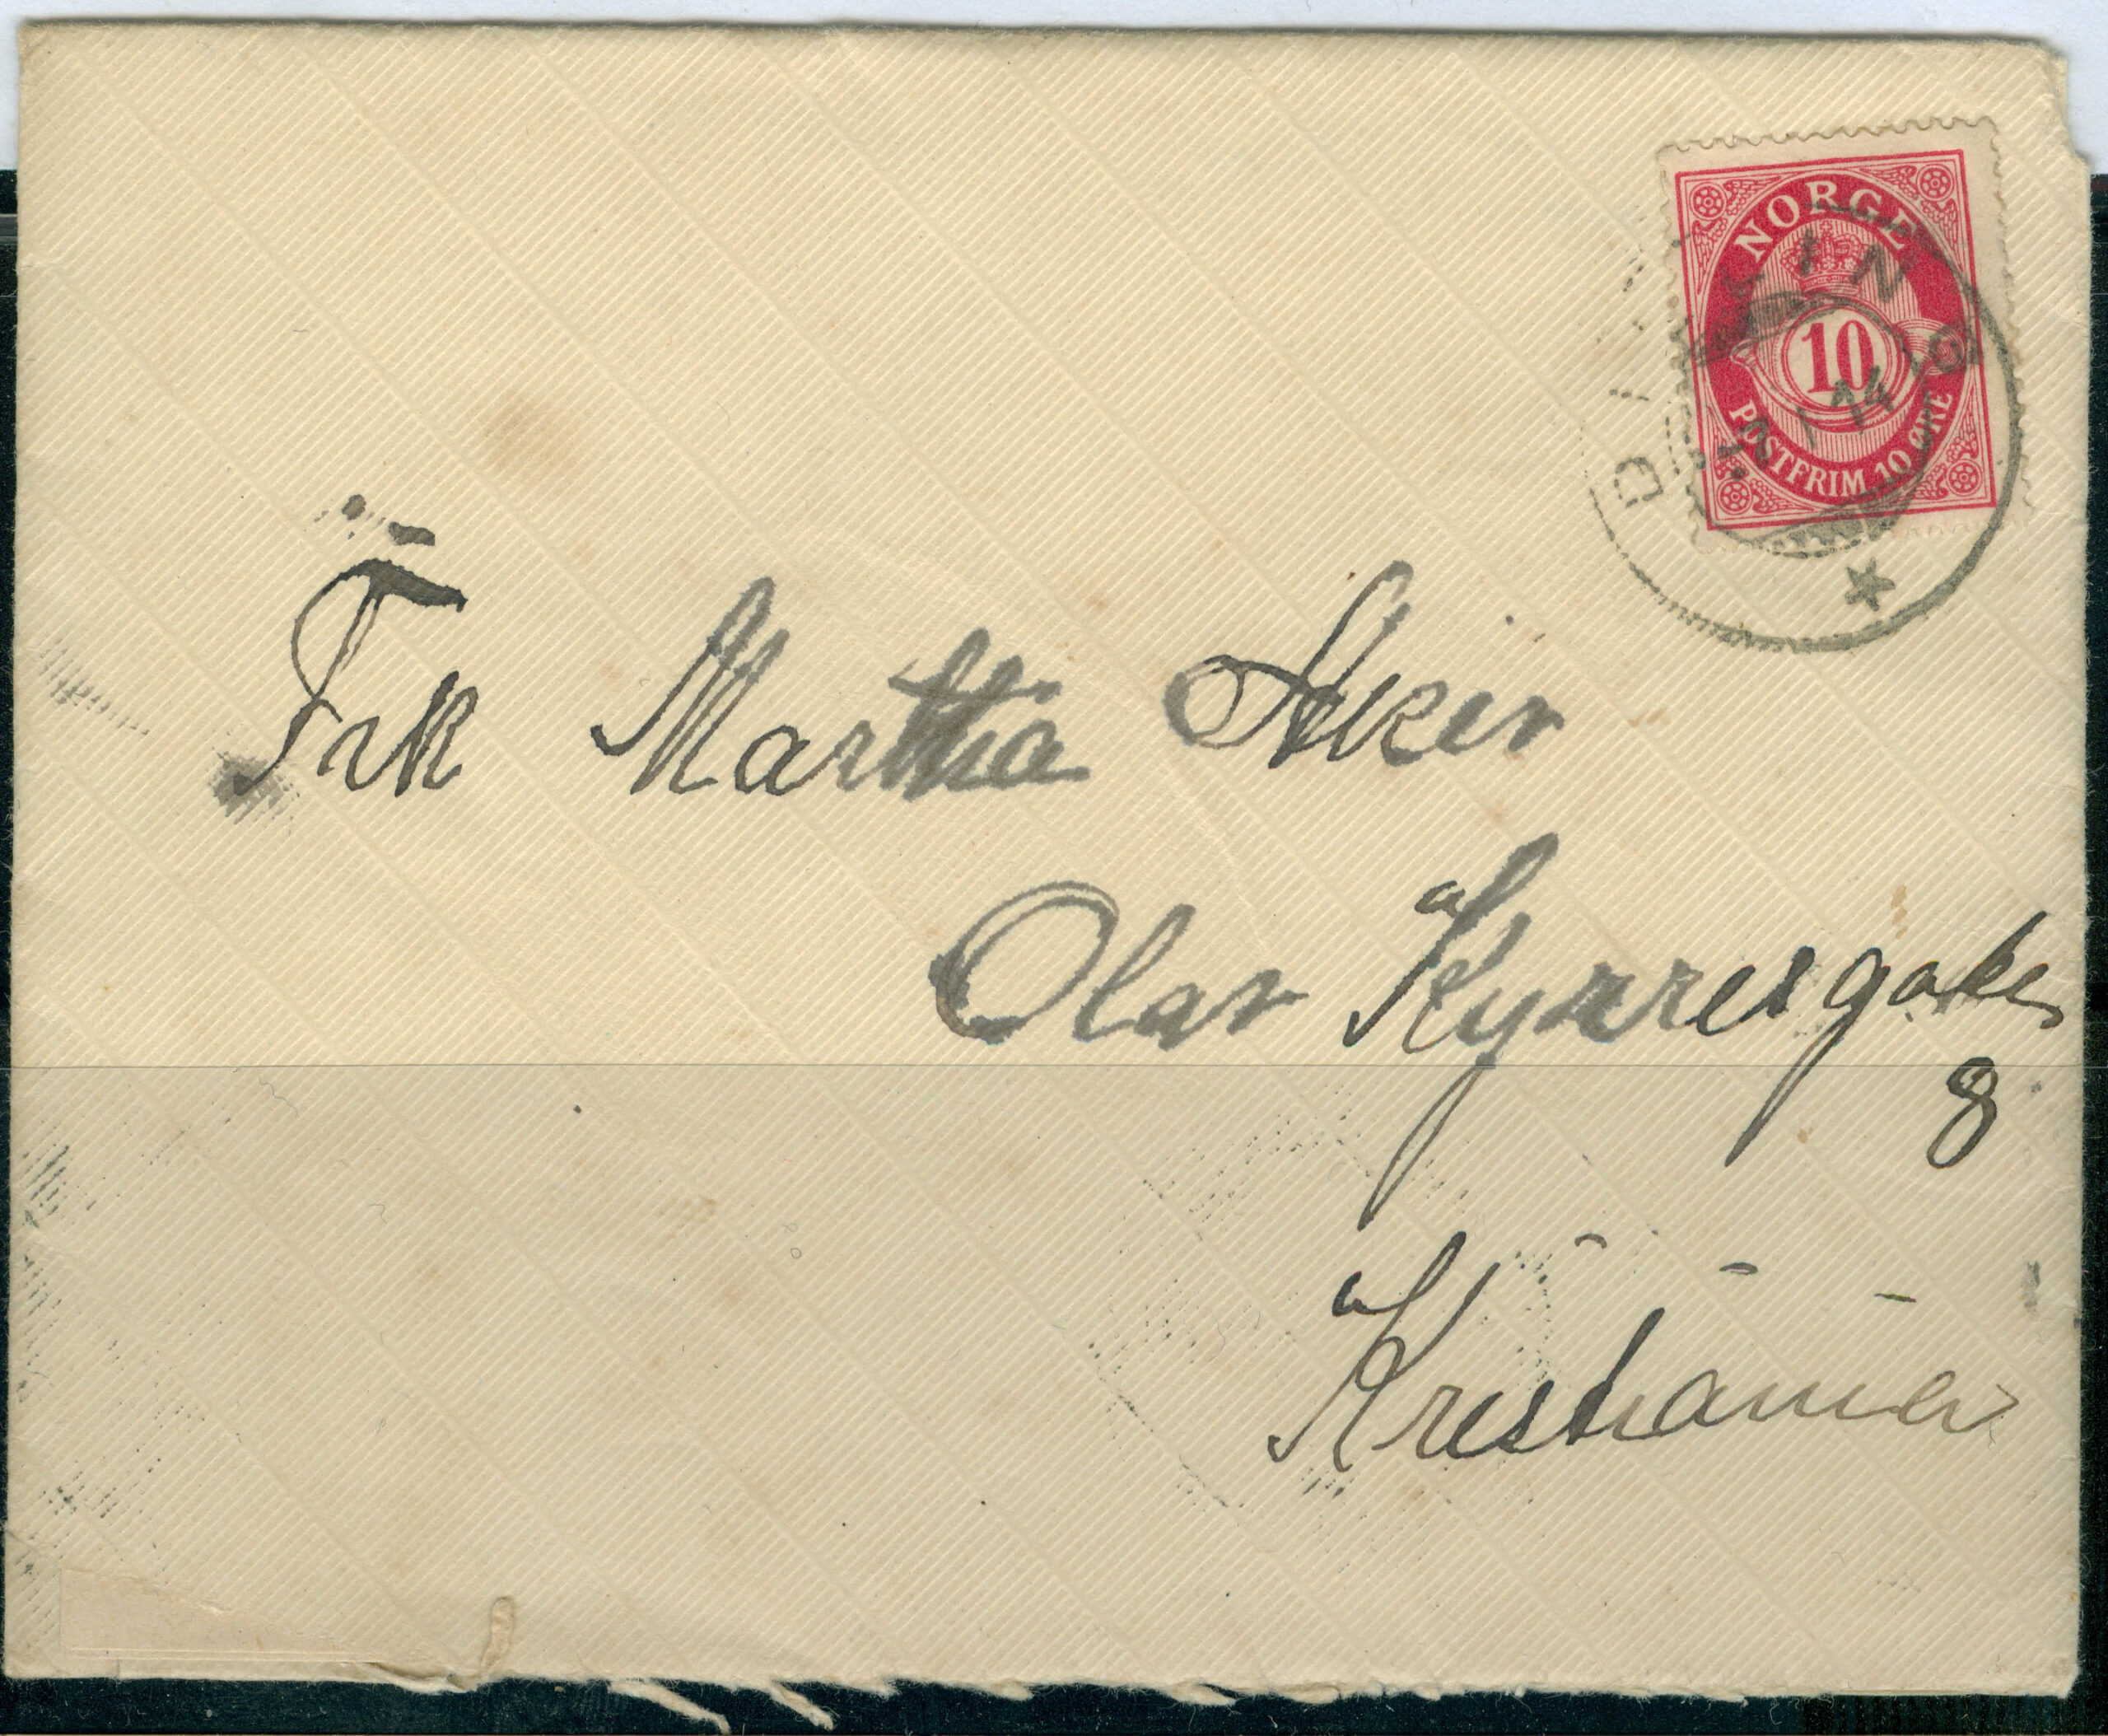 NORGE
10
POSTFRIM 10 ØRE
14
Frk Martha Aker
Olav Kyrresgate
8
Kristiania